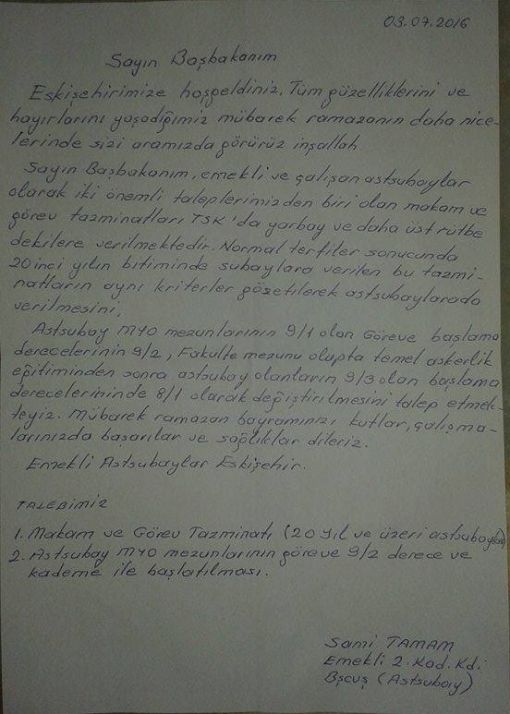 03.07.2016
Sayın Başbakanım
Eskişehirimize hoşgeldiniz. Tüm güzelliklerini ve
hayırlarını yaşadığımız mübarek ramazanın daha nice-
lerinde sizi aramızda görürüz inşallah.
Sayın Başbakanım, emekli ve çalışan astsubaylar
olarak iki önemli taleplerimizden biri olan makam ve
görev tazminatları TSK'da yarbay ve daha üst rütbe
dekilere verilmektedir. Normal terfiler sonucunda
20inci yılın bitiminde subaylara verilen bu tazmi-
natların aynı kriterler gözetilerek astsubaylarada
verilmesini,
Astsubay MYO mezunlarının 9/1 olan Göreve başlama
derecelerinin 9/2, Fakülte mezunu olupta temel askerlik
eğitiminden sonra astsubay olanların 9/3 olan başlama
derecelerininde 8/1 olarak değiştirilmesini talep etmek-
teyiz. Mübarek ramazan bayramınızı kutlar, çalışma-
larınızda başarılar ve sağlıklar dileriz.
Emekli Astsubaylar Eskişehir.
TALEBİMİZ
1. Makam ve Görev Tazminatı (20 yıl ve üzeri astsubaylara)
2. Astsubay MYO mezunlarının göreve 9/2 derece ve
kademe ile başlatılması.
Sami TAMAM
Emekli 2. Kad. Kd.
Bşçvş (Astsubay)